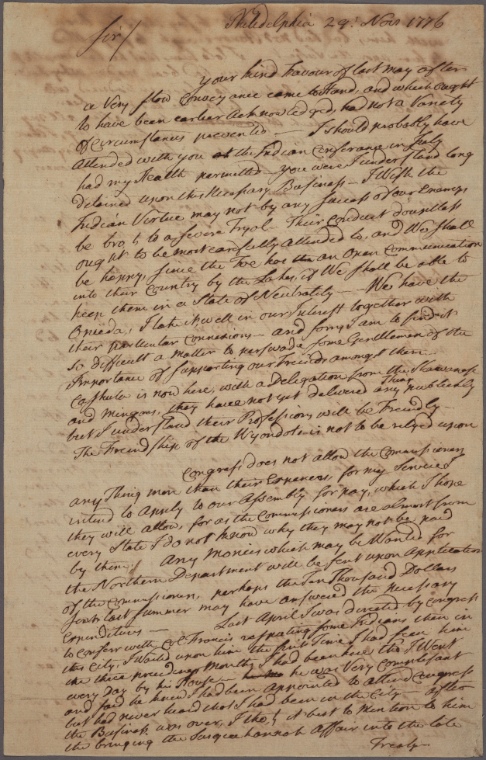 Philadelphia 29th Novr 1776
Sir/
your kind favour of last May after
a Very slow Convey ance came to Hand, and which ought
to have been earlier acknowledged, had not a Variety
of Circumstances prevented — I should probably have
attended with you at the Indian Conferrance in July
had my Health permitted — you were I understand long
detained upon this Necessary Business — I Wish the
Indian Virtue may not by any success of our Enemys
be bro't to a severe Tryal — Their Conduct doubtless
ought to be most carefully attended to, and We shall
be happy, since the Foe has an Open Communication
into their Country by the Lakes, if We shall be able to
keep them in a State of Neutrality — We have the
Oneida, I take it well in our interest together with
their particular Connexions — and sorry I am to find it
so difficult a matter to perswade some Gentlemen of the
Importance of supporting our Friends amongst them —
is now here, with a Delegation from the Shawanese
and Mingoes, they have not yet delivered any Thing publickly
but I understand their Professions will be Friendly —
The Friendship of the Wyondots is not to be relyed upon
Congress, does not allow the Comissioners
any Thing more than their Expences, for my Services I
intend to Apply to our Assembly for pay, which I hope
they will allow, for as the Commissioners are almost from
every State I do not know why they may not be paid
by them — Any Monies which may be Wanted for
the Northern Department will be sent upon Application
of the Commissioners, perhaps the ten Thousand Dollars
last Summer may have answered the necessary
Expenditures — Last April I was directed by Congress
to Confer with Col Francis respecting some Indians then in
this City, I Waited upon him the first Time I had seen him
the three preceeding Months I had been here tho I Went
every day by his House — he was Very Complaisant
and said he knew I had been appointed to attend Congress
but had never heard that I had been in the City — after
the Business was over, I tho't it best to Mention to him
the bringing the Susquehannah Affair into the late
Treaty —